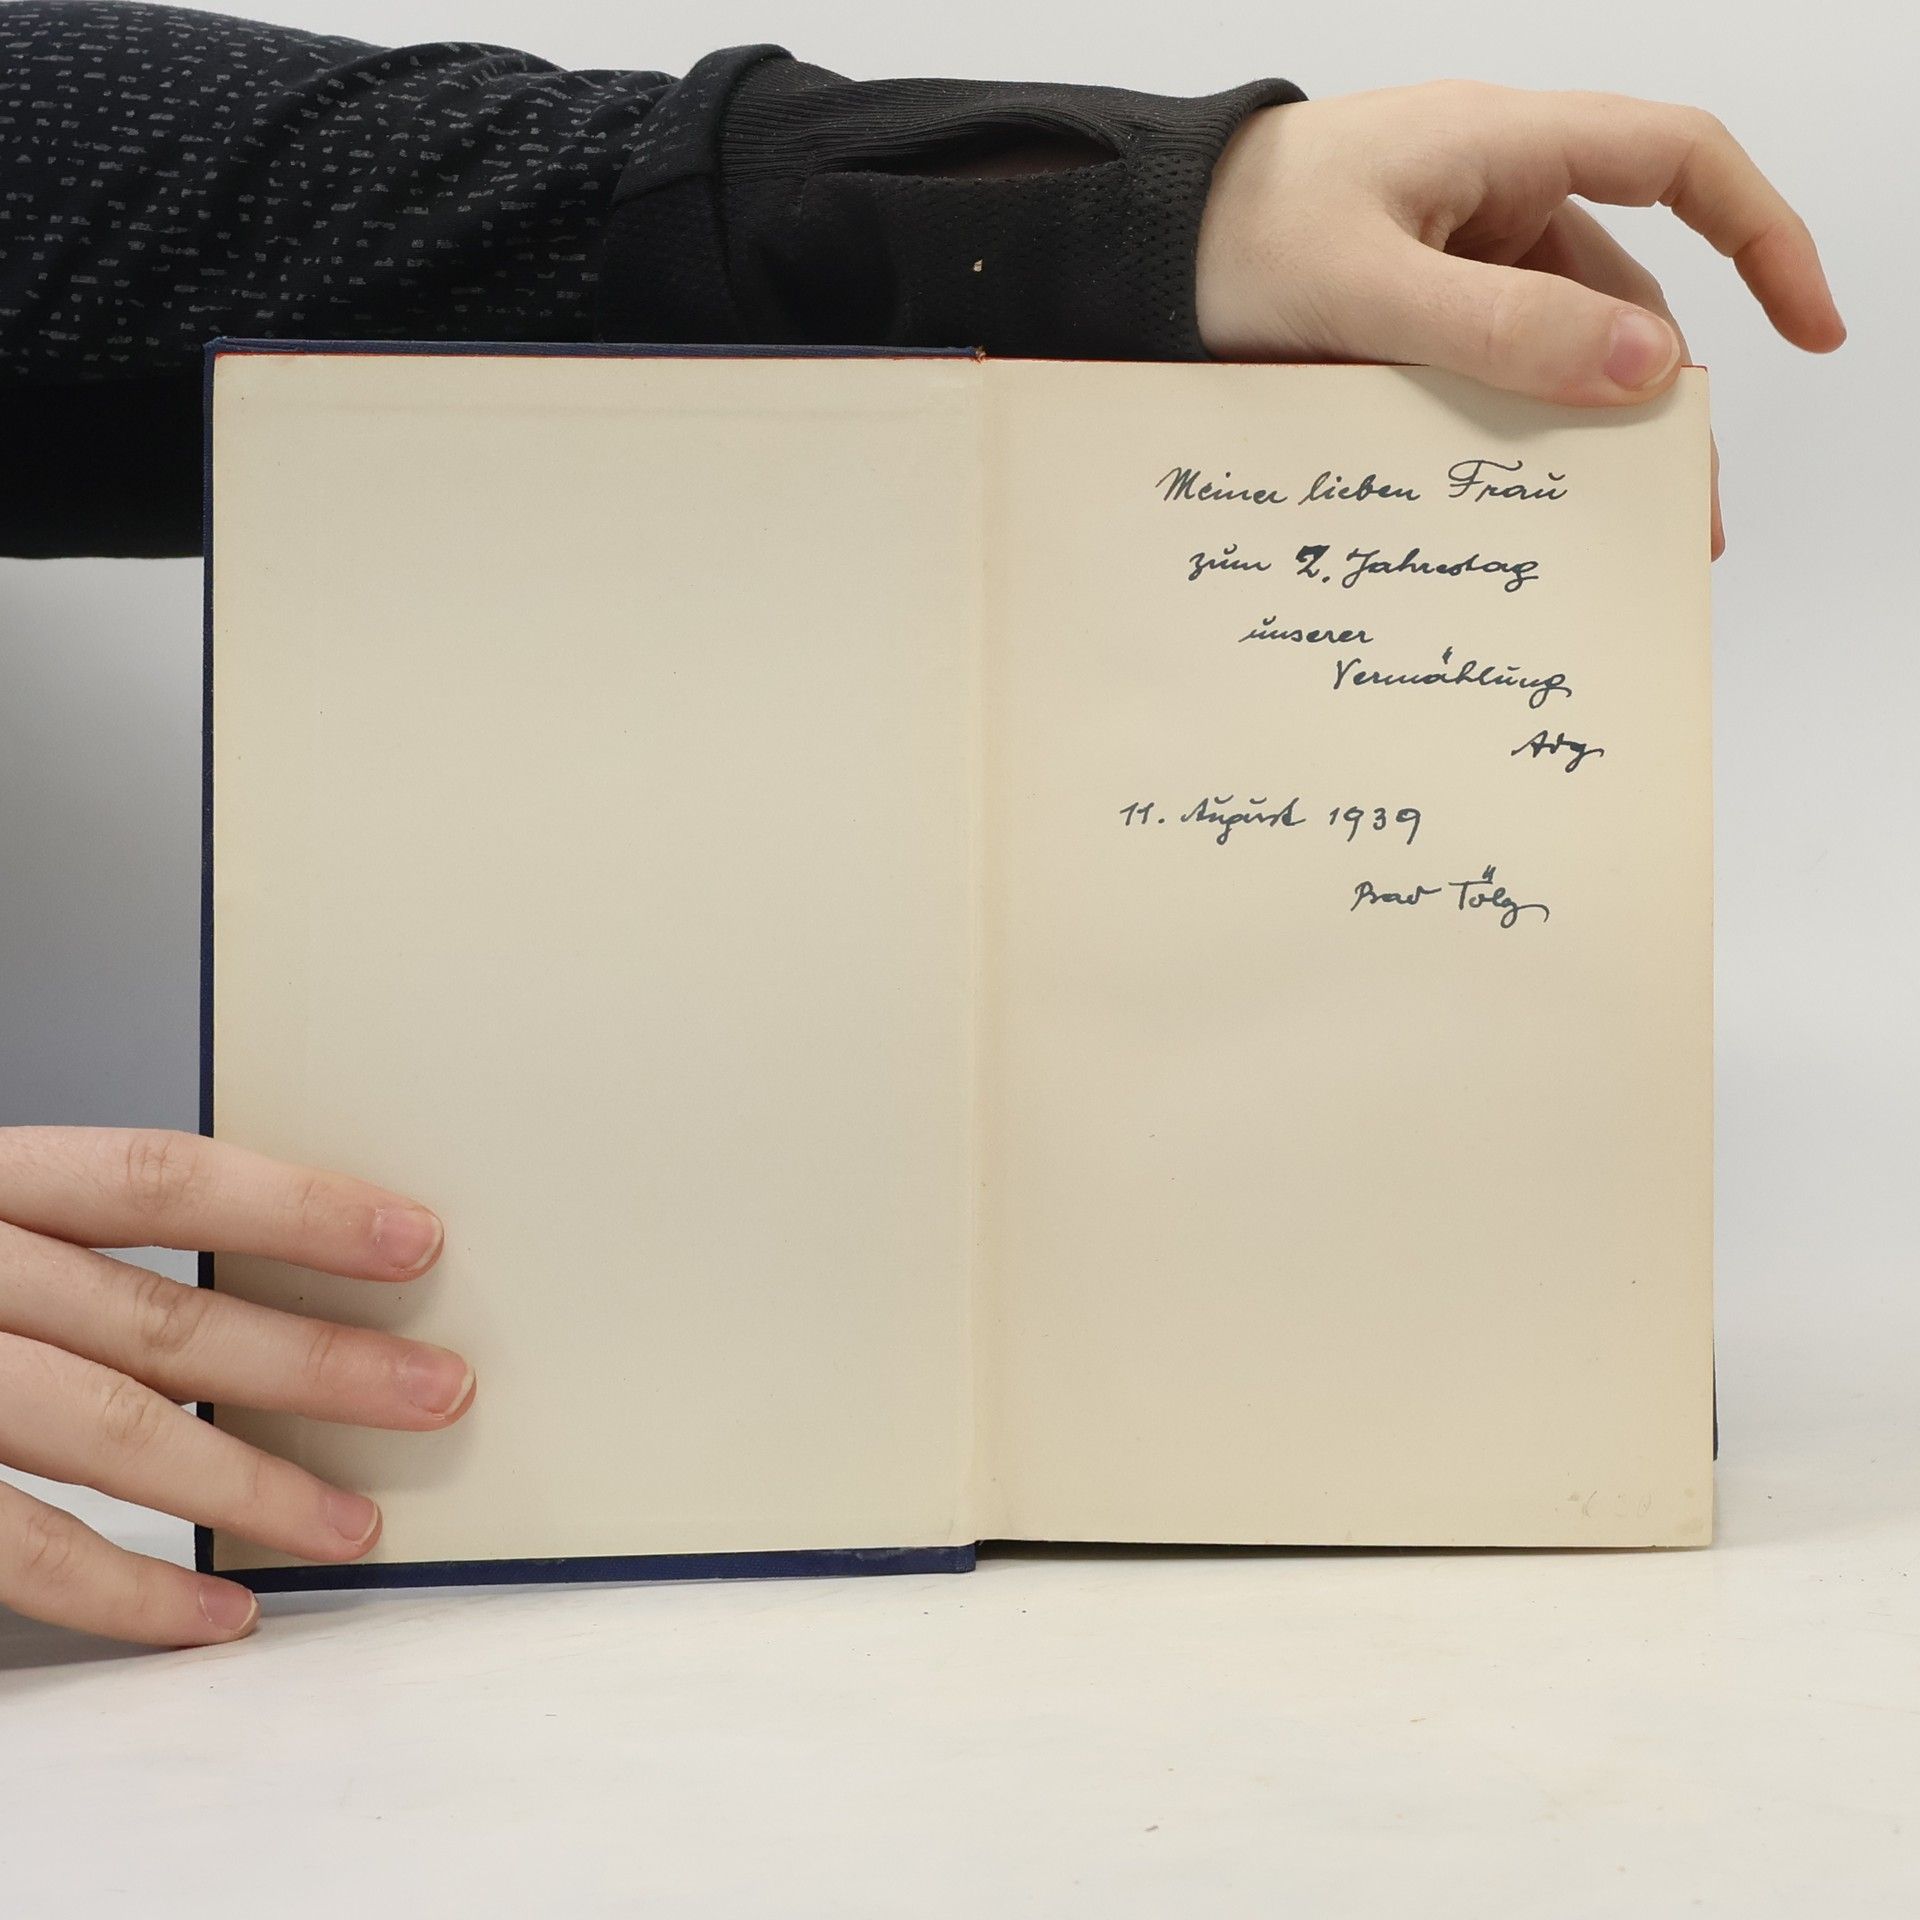 Meiner lieben Frau
zum 2. Jahrestag
unserer
Vermählung
Adg
11. August 1939
Bad Tölz